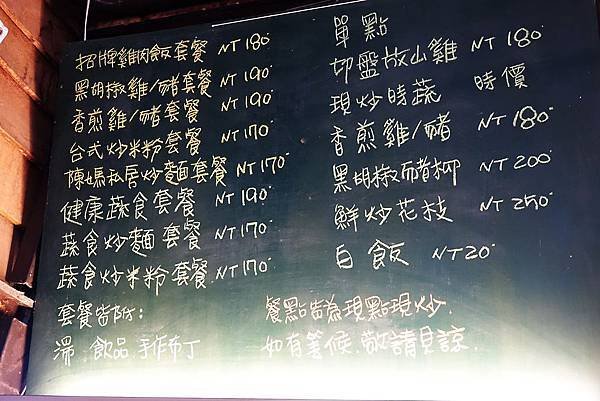 招牌雞肉飯套餐 NT 180
黑胡椒雞/豬套餐 NT 190
香煎雞/豬套餐 NT 190
台式炒米粉套餐 NT 170
陳媽私房炒麵套餐 NT 170
健康蔬食套餐 NT 190
蔬食炒麵套餐 NT 170
蔬食炒米粉套餐 NT 170
套餐皆附：
湯 飲品 手作布丁
單點
切盤放山雞 NT 180
現炒時蔬 時價
香煎雞/豬 NT 180
黑胡椒豬柳 NT 200
鮮炒花枝 NT 250
白飯 NT 20
餐點皆為現點現炒.
如有等候.敬請見諒.